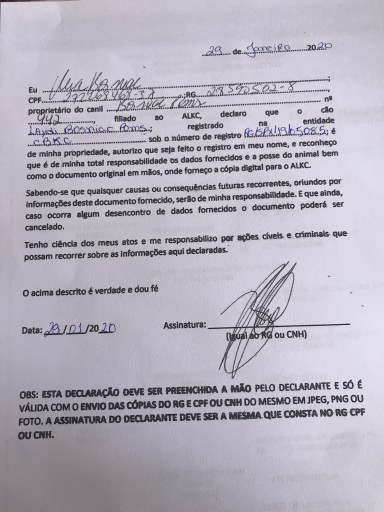 29 de Janeiro 2020
Eu Ilza Bosniac ;
CPF ;RG 28592502-8 ;
proprietário do canil Bosniac Poms nº
942, filiado ao ALKC, declaro que o cão
Laydi Bosniac Poms; registrado na entidade
CBKC sob o número de registro ; é
de minha propriedade, autorizo que seja feito o registro em meu nome, e reconheço
que é de minha total responsabilidade os dados fornecidos e a posse do animal bem
como o documento original em mãos, onde forneço a cópia digital para o ALKC.
Sabendo-se que quaisquer causas ou consequências futuras recorrentes, oriundos por
informações deste documento fornecido, serão de minha responsabilidade. E que ainda,
caso ocorra algum desencontro de dados fornecidos o documento poderá ser
cancelado.
Tenho ciência dos meus atos e me responsabilizo por ações cíveis e criminais que
possam recorrer sobre as informações aqui declaradas.
O acima descrito é verdade e dou fé
Data: 29/01/2020 Assinatura:
(Igual ao RG ou CNH)
OBS: ESTA DECLARAÇÃO DEVE SER PREENCHIDA A MÃO PELO DECLARANTE E SÓ É
VÁLIDA COM O ENVIO DAS CÓPIAS DO RG E CPF OU CNH DO MESMO EM JPEG, PNG OU
FOTO. A ASSINATURA DO DECLARANTE DEVE SER A MESMA QUE CONSTA NO RG CPF
OU CNH.